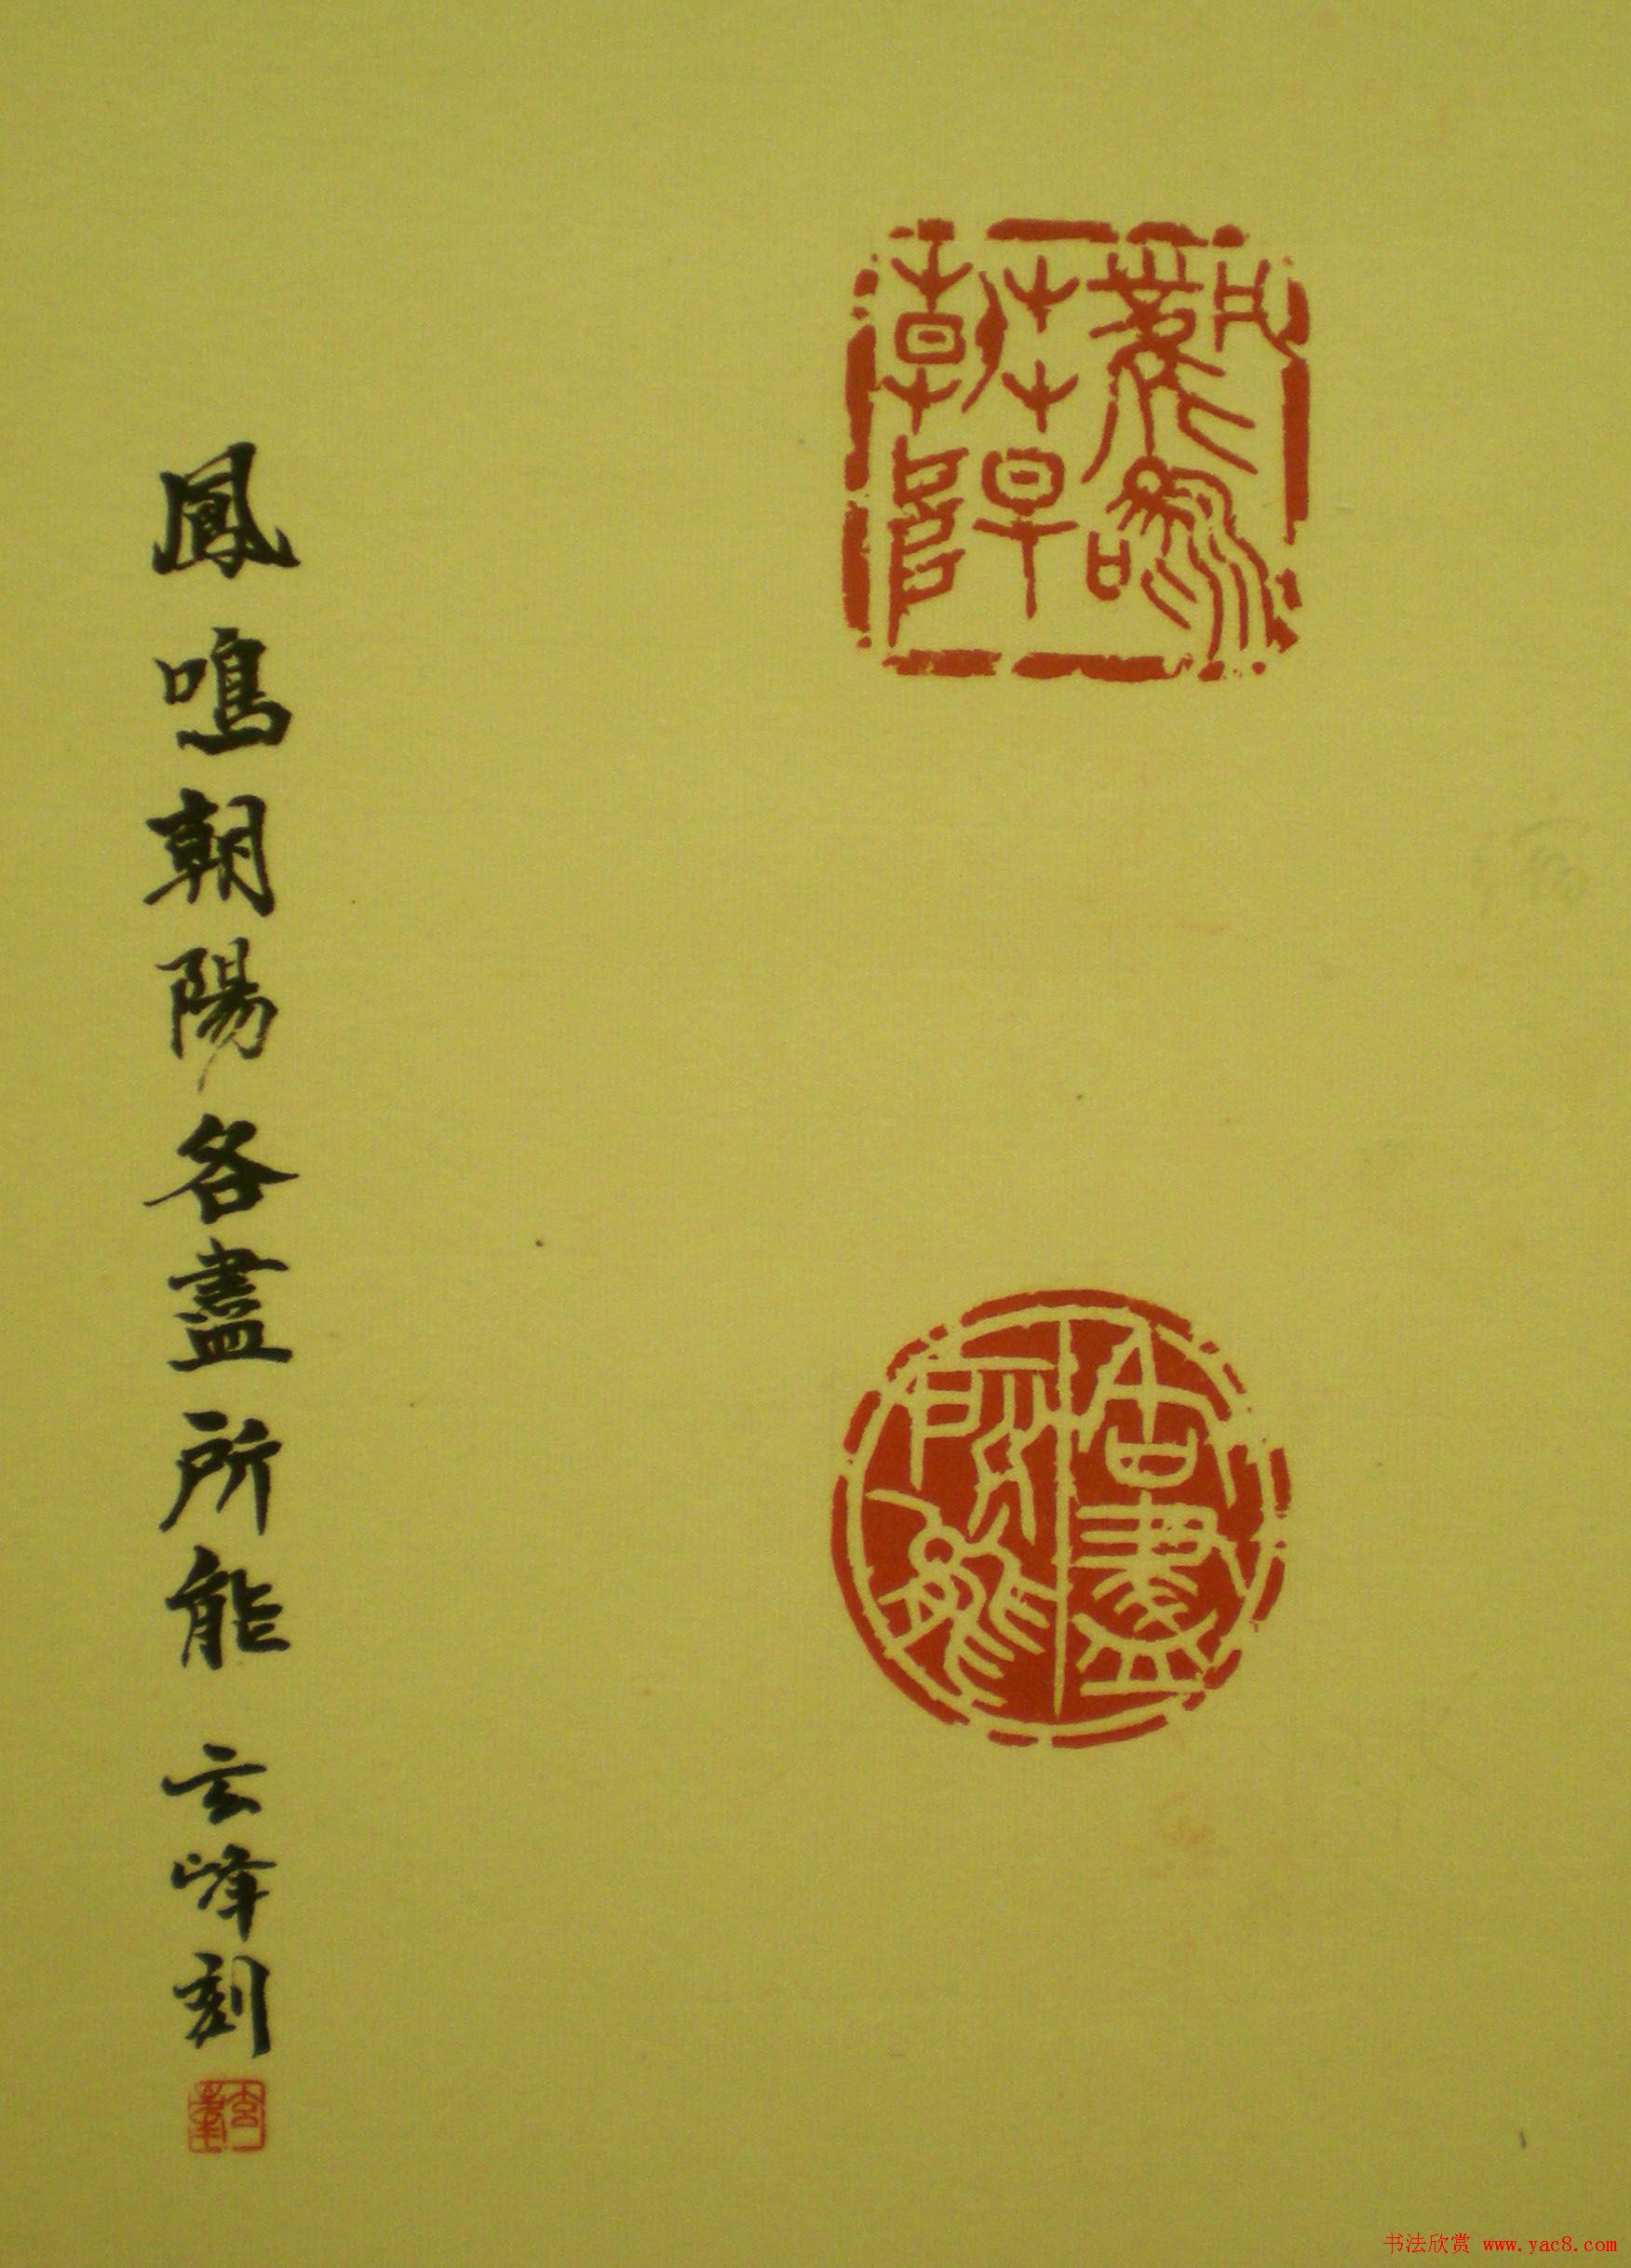 鳳鳴
朝陽
各盡
所能
鳳鳴朝陽各盡所能 云峰刻
云峰
书法欣赏 www.yac8.com